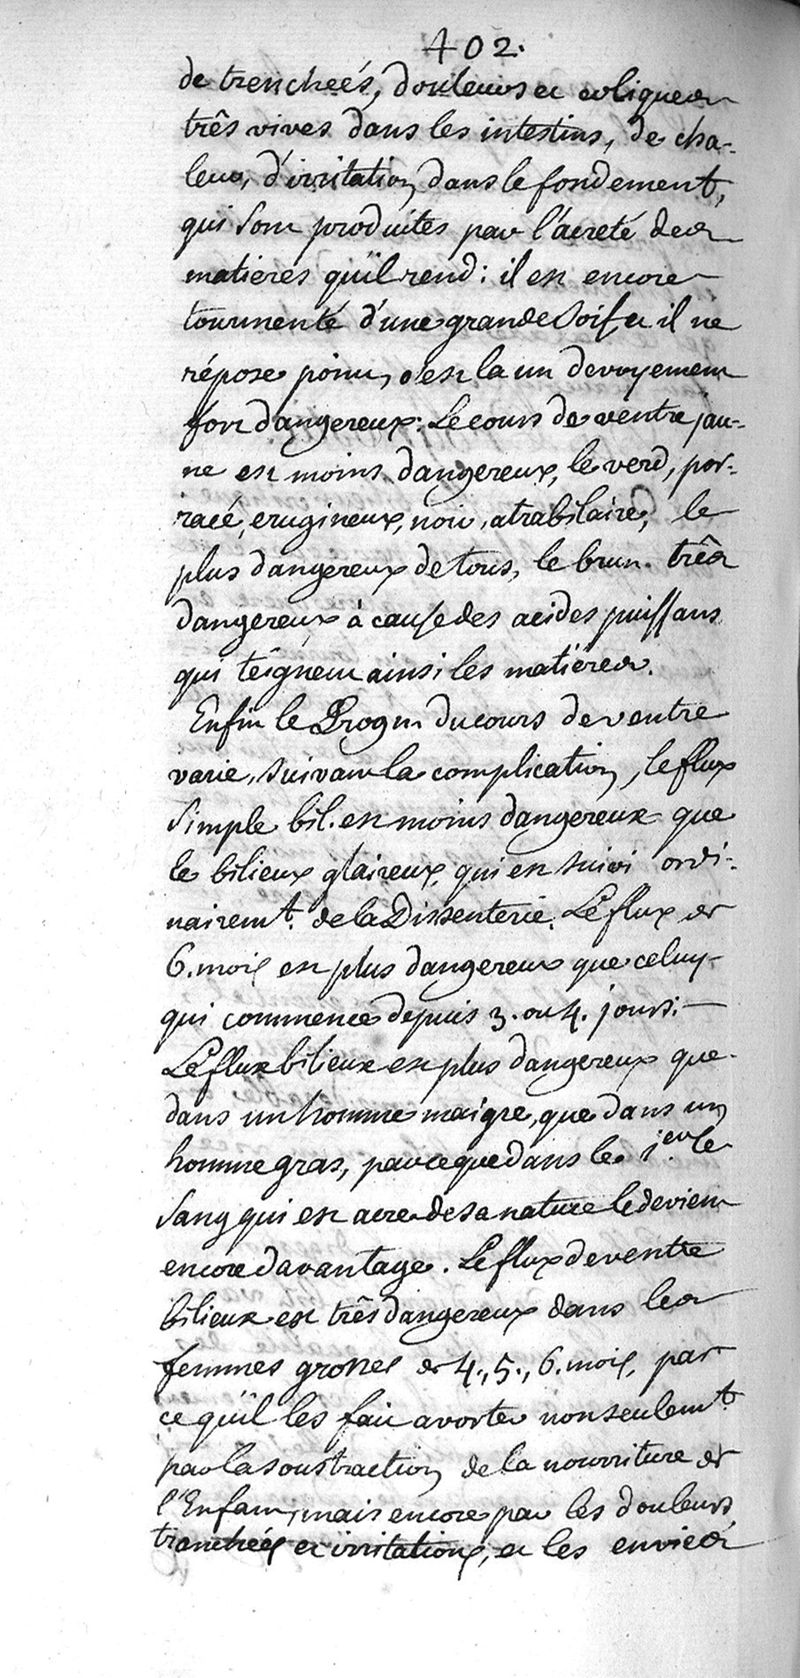 402.
de trencheés, douleurs et coliques
três vives dans les intestins, de cha-
leur, d'irritation dans le fondement,
qui sont produites par l'acreté des
matieres qu'il rend: il est encore
tourmenté d'une grande soif et il ne
répose point, c'est la un devoyement
fort dangereux: Le cours de ventre jau-
ne est moins dangereux, le verd, por-
racé, erugineux, noir, atrabilaire, le
plus dangereux de tous, le brun três
dangereux à cause des acides puissans
qui teignent ainsi les matiéres.
Enfin le Progn. du cours de ventre
varie, suivant la complication, le flux
simple bil. est moins dangereux que
le bilieux glaireux, qui est suivi ordi-
nairemt. de la Dissenterie. Le flux de
6. mois est plus dangereux que celuy
qui commence depuis 3. ou 4. jours.
Le flux bilieux est plus dangereux que
dans un homme maigre, que dans un
homme gras, parce que dans le 1er. le
sang qui est acre de sa nature le devient
encore davantage. Le flux de ventre
bilieux est três dangereux dans les
femmes grosses de 4., 5., 6. mois, par
ce qu'il les fait avorter non seulemt.
par la soustraction de la nourriture de
l'Enfant, mais encore par les douleurs,
tranchées et irritations, et les envies